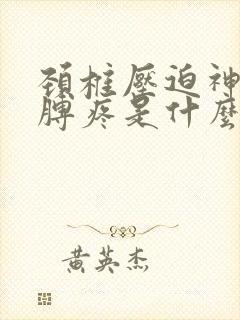 頚椎壓迫神
脾疼是什麼
黄英杰